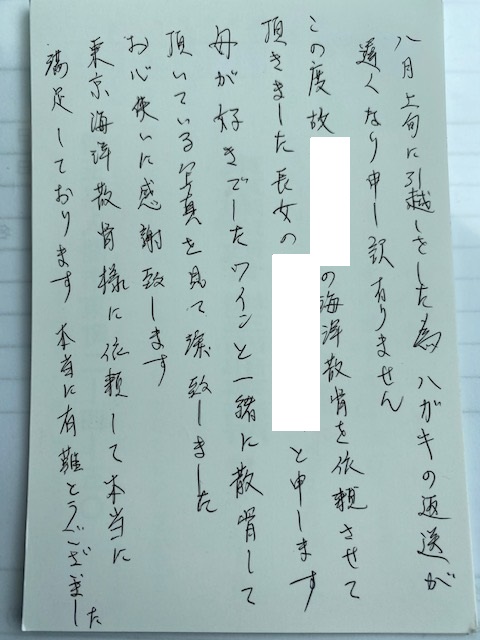 八月上旬に引越しをした為ハガキの返送が
遅くなり申し訳有りません
この度故の海洋散骨を依頼させて
頂きました長女のと申します
母が好きでしたワインと一緒に散骨して
頂いている写真を見て涙致しました
お心使いに感謝致します
東京海洋散骨様に依頼して本当に
満足しております 本当に有難とうございました